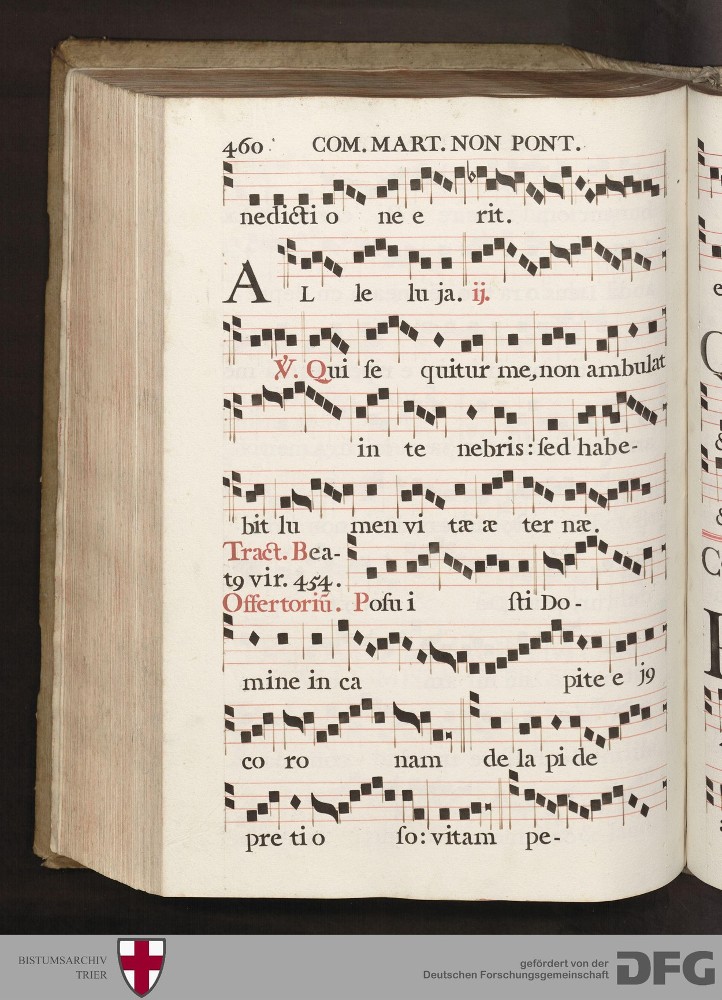 460. COM. MART. NON PONT.
nedicti o ne e rit.
A L le lu ja. ij.
℣. Qui se quitur me, non ambulat
in te nebris: sed habe-
bit lu men vi tæ æ ter næ.
Tract. Bea-
t9 vir. 454.
Offertoriũ. Posu i sti Do-
mine in ca pite e j9
co ro nam de la pi de
pre ti o so: vitam pe-
BISTUMSARCHIV
TRIER
gefördert von der
Deutschen Forschungsgemeinschaft
DFG